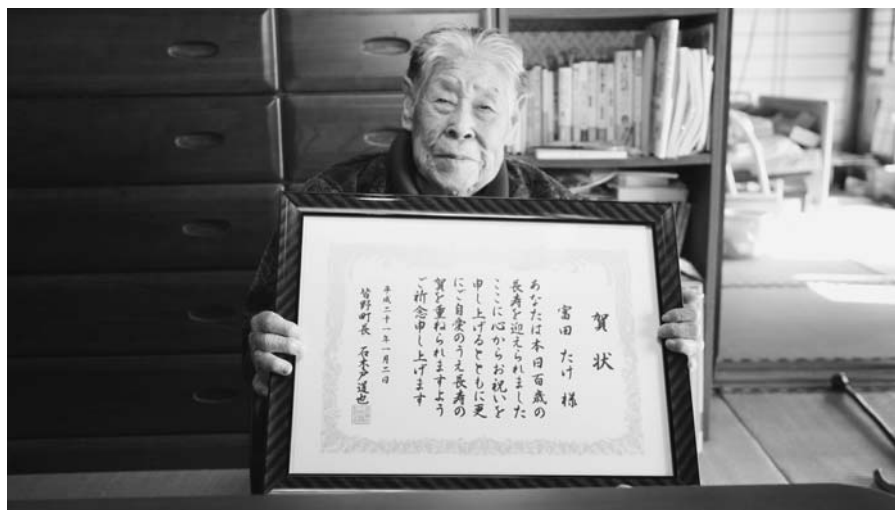 賀状
富田たけ様
あなたは本日百歳の
長寿を迎えられました
ここに心からお祝いを
申し上げるとともに更
にご自愛のうえ長寿の
賀を重ねられますよう
ご祈念申し上げます
平成二十一年一月二日
皆野町長 石木戸道也